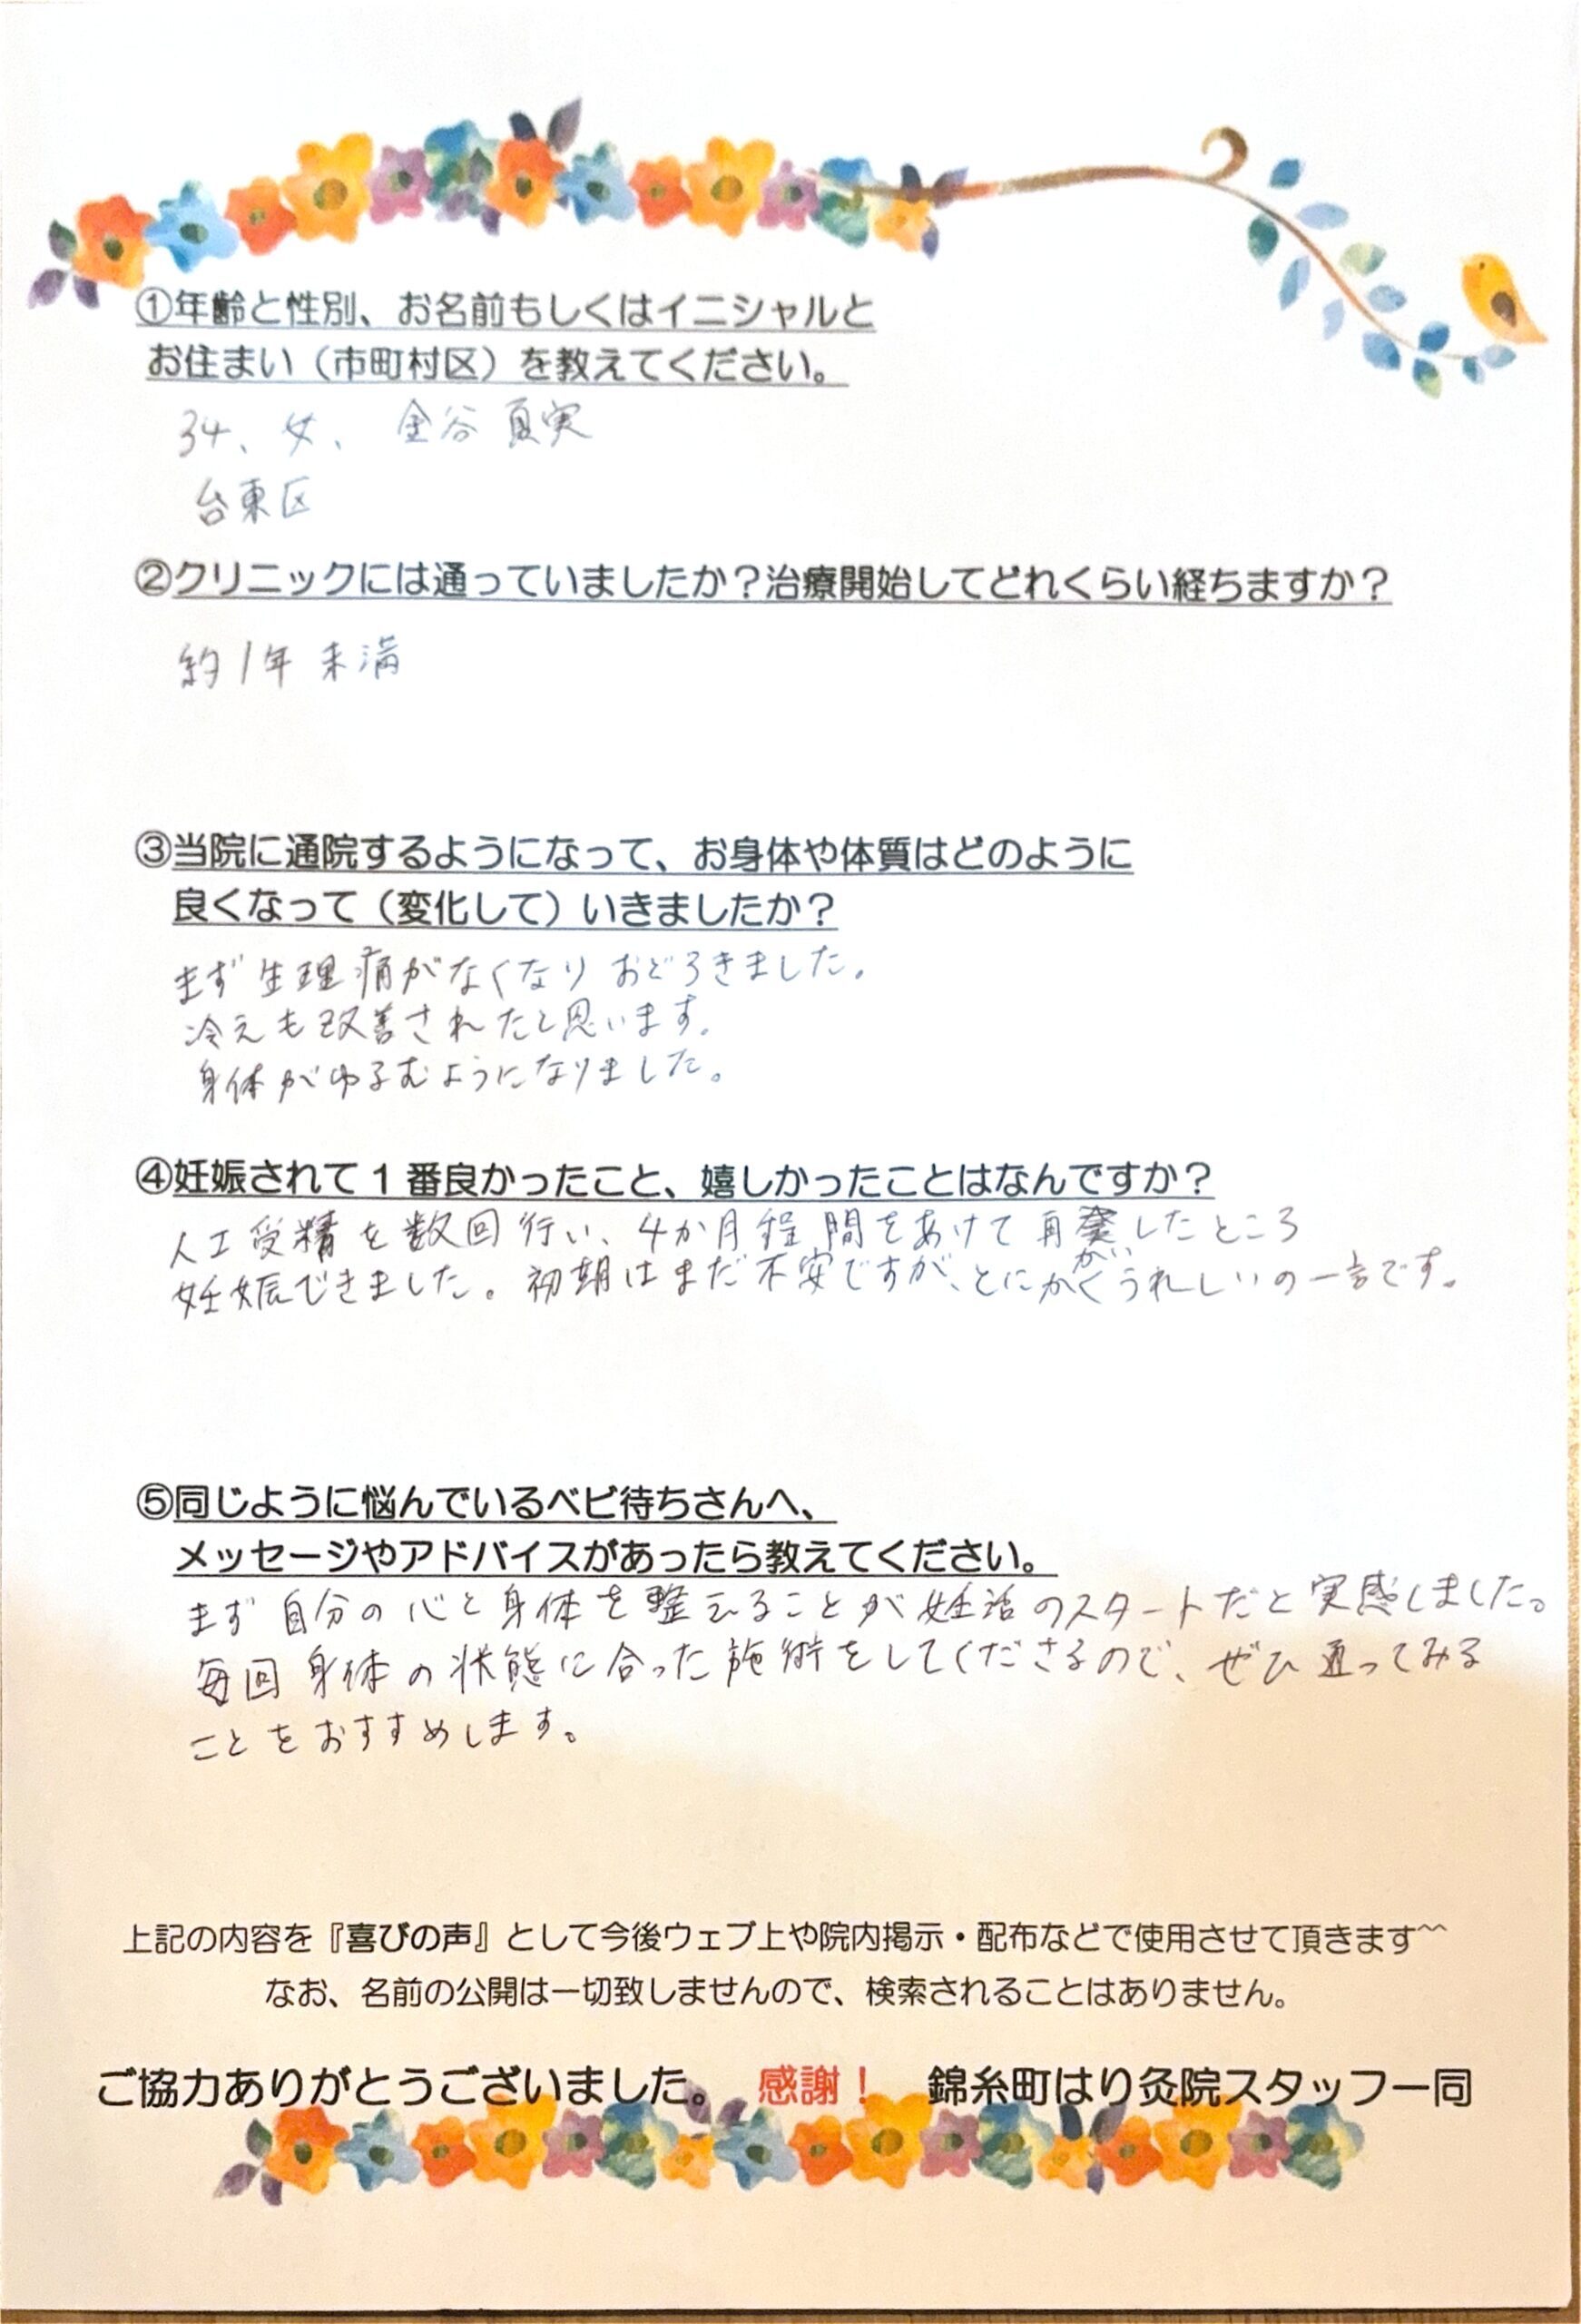 ①年齢と性別、お名前もしくはイニシャルと
お住まい（市町村区）を教えてください。
34、女、金谷 夏実
台東区
②クリニックには通っていましたか？治療開始してどれくらい経ちますか？
約1年未満
③当院に通院するようになって、お身体や体質はどのように
良くなって（変化して）いきましたか？
まず生理痛がなくなりおどろきました。
冷えも改善されたと思います。
身体がゆるむようになりました。
④妊娠されて１番良かったこと、嬉しかったことはなんですか？
人工受精を数回行い、4か月程間をあけて再したところ
妊娠できました。初期はまだ不安ですが、とにかくうれしいの一言です。
⑤同じように悩んでいるベビ待ちさんへ、
メッセージやアドバイスがあったら教えてください。
まず自分の心と身体を整えることが妊活のスタートだと実感しました。
毎回身体の状態に合った施術をしてくださるので、ぜひ通ってみる
ことをおすすめします。
上記の内容を『喜びの声』として今後ウェブ上や院内掲示・配布などで使用させて頂きます^^
なお、名前の公開は一切致しませんので、検索されることはありません。
ご協力ありがとうございました。 感謝！ 錦糸町はり灸院スタッフ一同